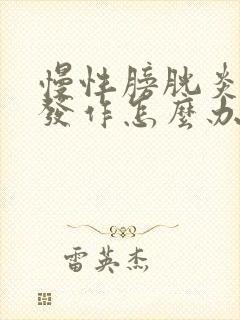 慢性膀胱炎
發作怎麼办
雷英杰